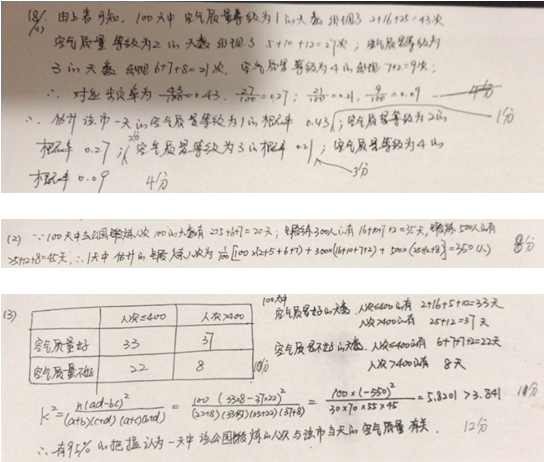 18/ (1) 由上表可知, 100天中空气质量等级为1的天数出现了 2+16+25=43次
空气质量等级为2的天数出现了 5+10+12=27次; 空气质量等级为
3的天数出现 6+7+8=21次, 空气质量等级为4的出现 7+2=9次;
∴ 对应频率为 43/100=0.43, 27/100=0.27; 21/100=0.21, 9/100=0.09 4分
∴ 估计该市一天的空气质量等级为1的概率 0.43; 空气质量等级为2的 1分
概率 0.27; 2分 空气质量等级为3的概率 0.21; 空气质量等级为4的 3分
概率 0.09 4分
(2) ∵100天中去公园锻炼人次100的天数有 2+5+6+7=20天; 锻炼300人的有16+10+7+2=35天, 锻炼500人的有
25+12+8=45天, ∴1天中估计的锻炼人次为 1/100[100×(2+5+6+7)+300×(16+10+7+2)+500×(25+12+8)]=350(人) 8分
(3) 人次≤400 人次>400
空气质量好 33 37
空气质量不好 22 8 10分
100天中
空气质量好的天数, 人次≤400的有 2+16+5+10=33天
人次>400的有 25+12=37天
空气质量不好的天数, 人次≤400的有 6+7+7+2=22天
人次>400的有 8天
K²=n(ad-bc)²/(a+b)(c+d)(a+c)(b+d) = 100(33×8-37×22)²/(22+8)(33+37)(33+22)(37+8) = 100×(-550)²/30×70×55×45 = 5.8201>3.841 11分
∴ 有95%的把握认为一天中该公园锻炼的人次与该市当天的空气质量有关. 12分